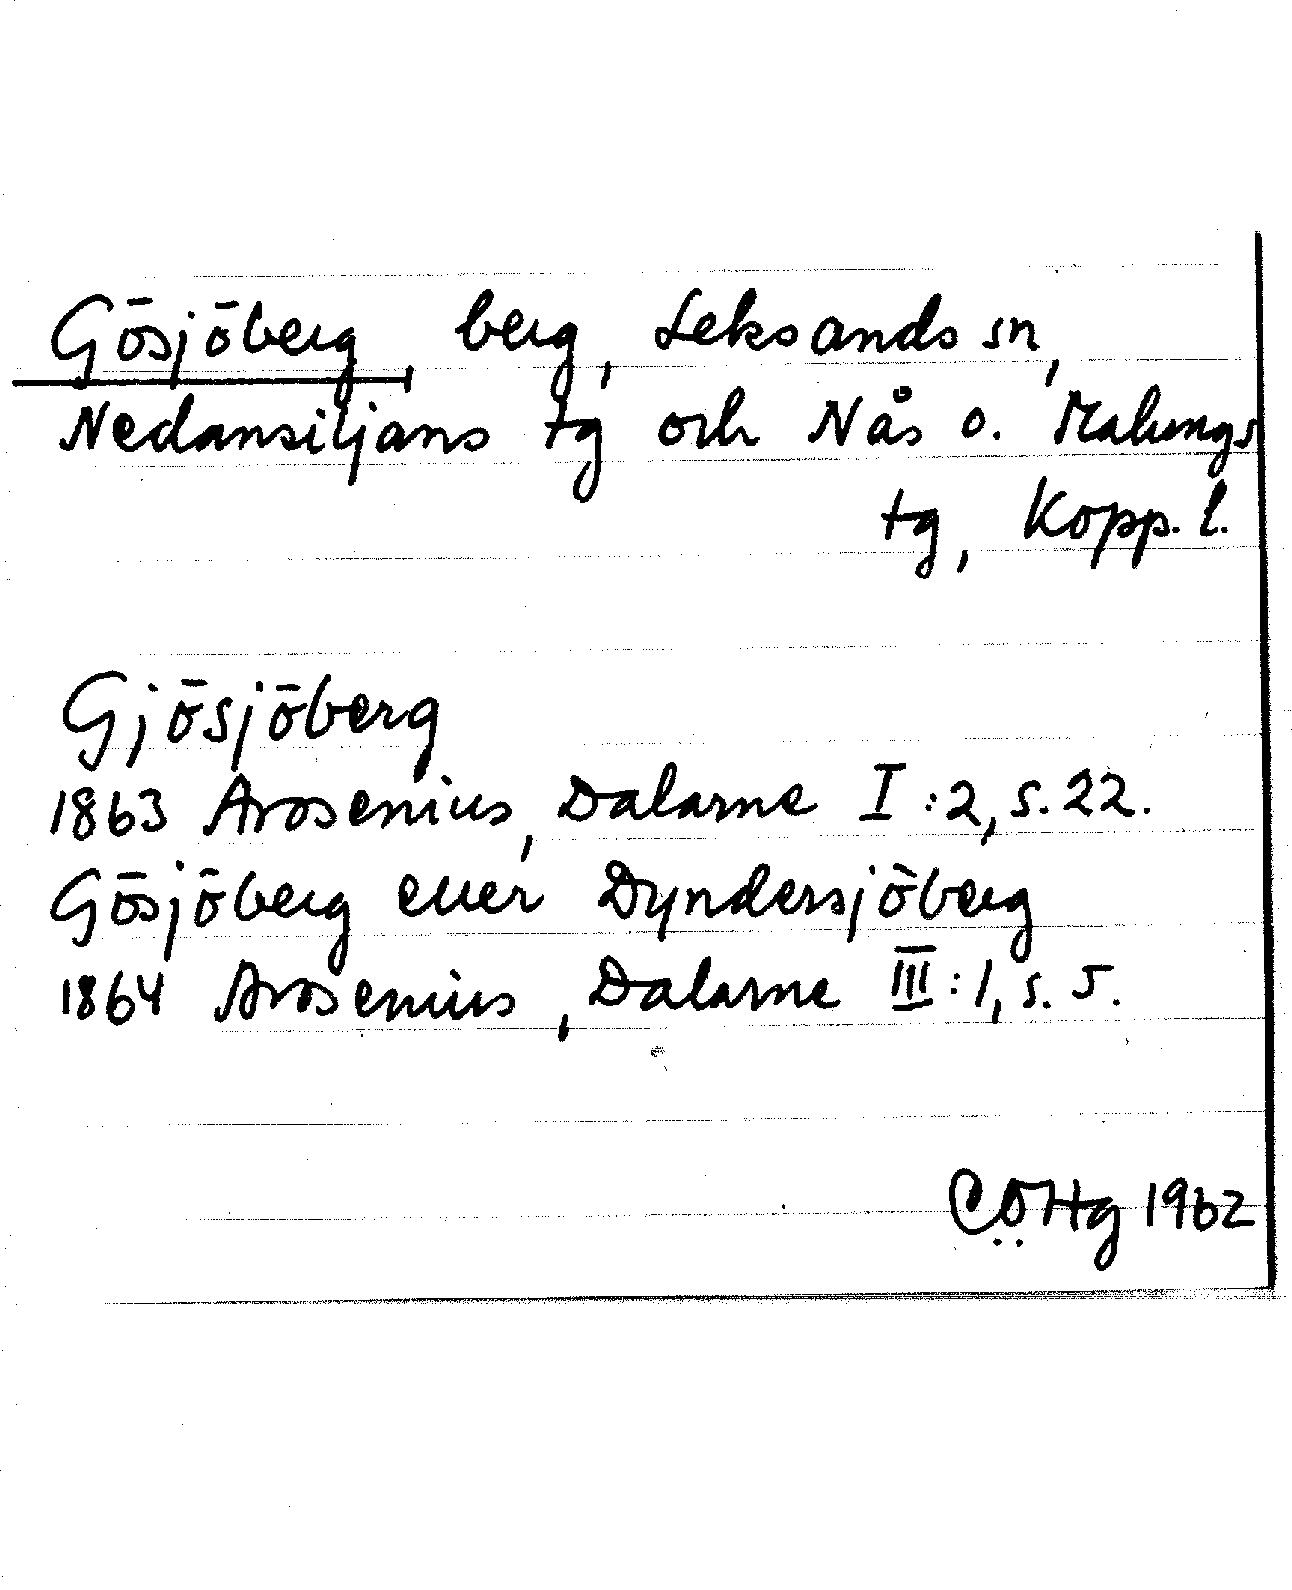 Gösjöberg, berg, Leksands sn,
Nedansiljans tg och Nås o. Malungs
tg, Kopp. l.
Gjösjöberg
1863 Arosenius, Dalarne I:2, s. 22.
Gösjöberg eller Dyndersjöberg
1864 Arosenius, Dalarne III:1, s. 5.
1962